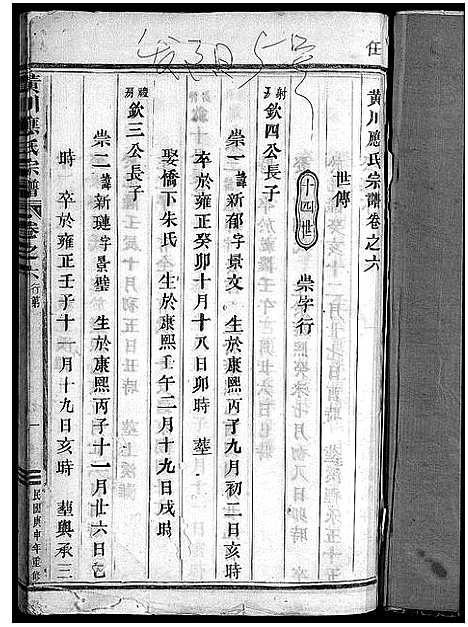 任
黃川應氏宗譜卷之六
世傳
十四世 崇字行
射房 欽四公長子
崇一 諱新郁字景文 生於康熙丙子九月初二日亥時
卒於雍正癸卯十月十八日卯時 墓
娶橋下朱氏 生於康熙壬午二月十九日戌時
禮房 欽三公長子
崇二 諱新璉字景璧 生於康熙丙子十一月廿六日巳
時 卒於雍正壬子十一月十九日亥時 墓與承三
黃川應氏宗譜 卷之六 行第 一
民國庚申年重修